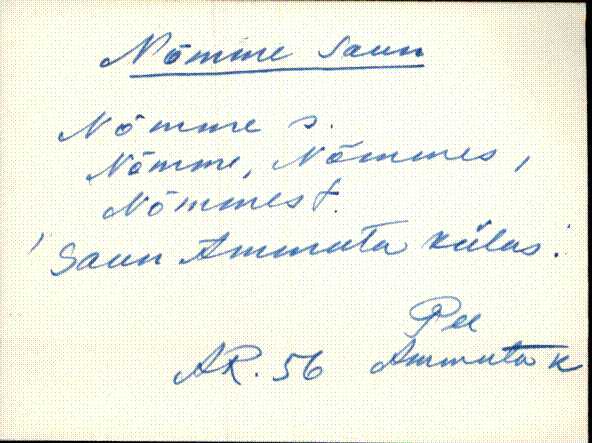 Nõmme saun
Nõmme s.
Nõmme, Nõmmes,
Nõmmest.
Saun Ammuta külas.
Pee
AR. 56 Ammuta k